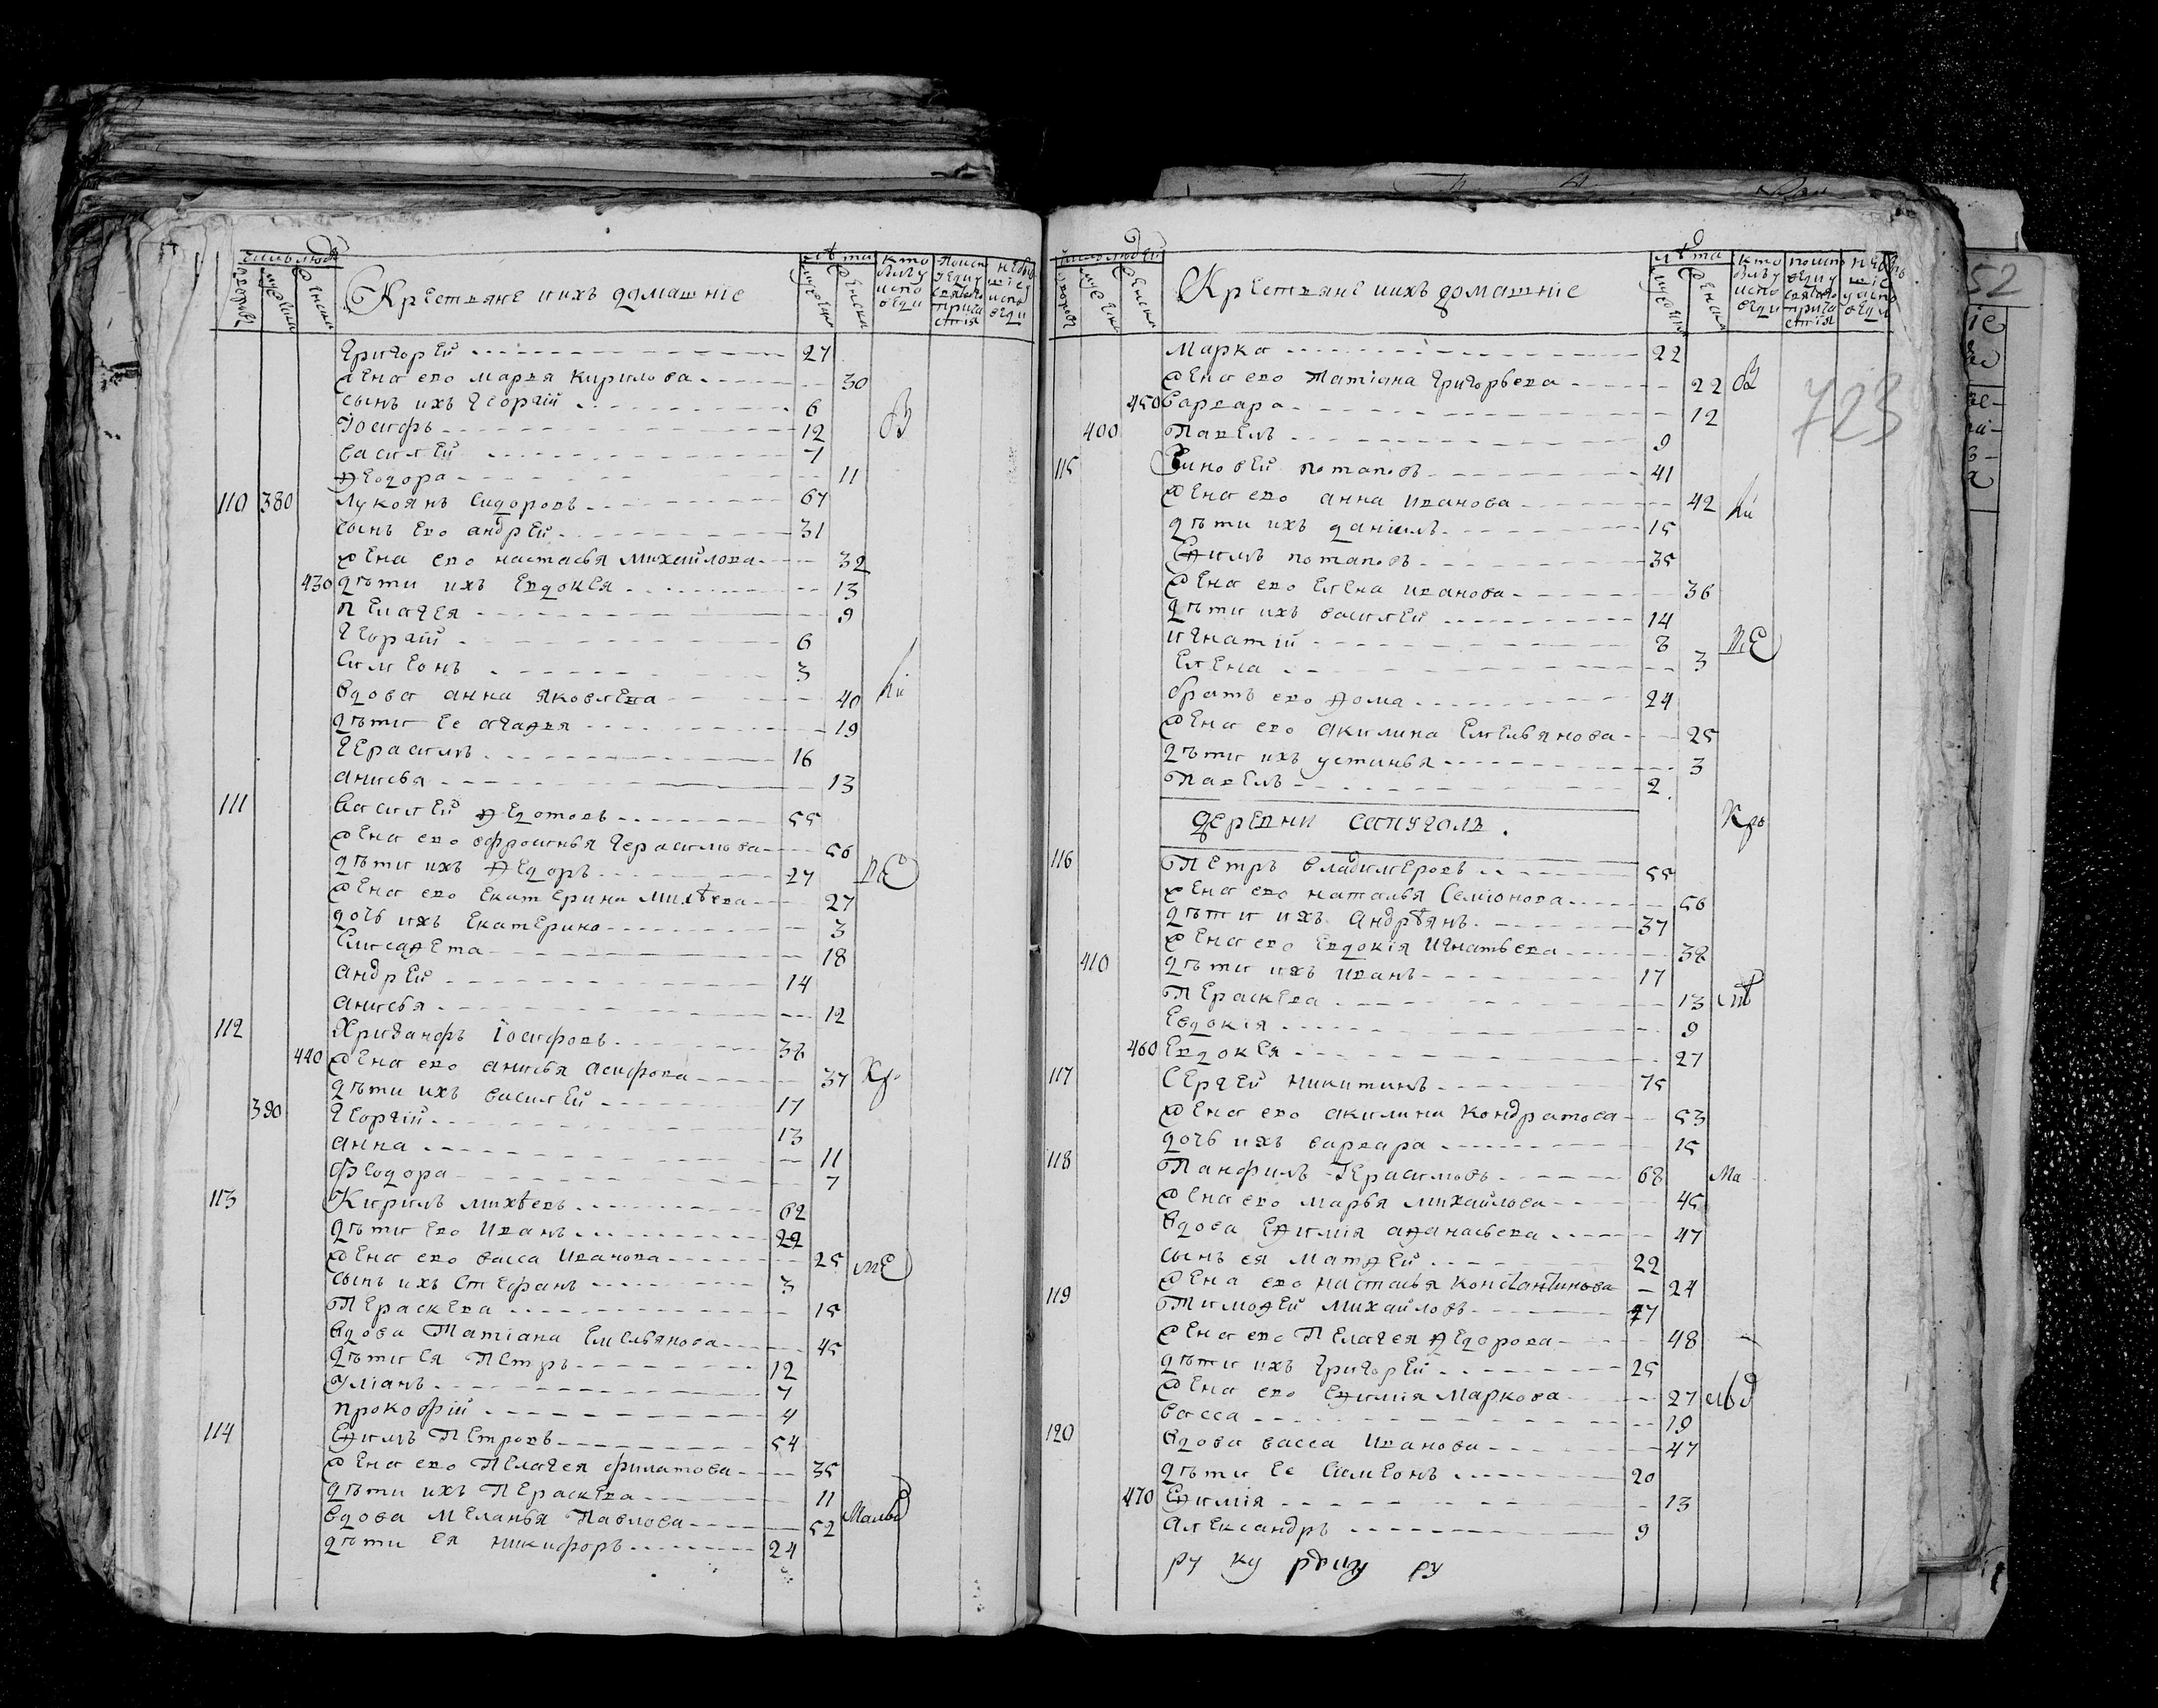 число людей
дворовъ мужеска женска
Крестьяне и ихъ домашніе
лѣта
мужеска женска
кто былъ у исповеди
Григорей 27
Жена его Марѳа Кирилова 30
сынъ ихъ Георгій 6
Іосифъ 12
В
Василей 7
Ѳеодора 11
110 380 Лукоянъ Сидоровъ 67
сынъ его Андрей 31
Жена его Настасья Михайлова 32
430 дѣти ихъ Евдокея 13
Пелагея 9
Георгій 6
Симеонъ 3
вдова Анна Яковлева 40
дѣти ее Агаѳья 19
Герасимъ 16
Анисья 13
111 Василей Ѳедотовъ 55
Жена его Офросинья Герасимова 56
дѣти ихъ Ѳедоръ 27
Жена его Екатерина Михѣева 27
дочь ихъ Екатерина 3
Елисавета 18
Андрей 14
Анисья 12
112 Хрисанфъ Іосифовъ 38
440 Жена его Анисья Осифова 37
дѣти ихъ Василей 17
390 Георгій 13
Анна 11
Феодора 7
113 Кирилъ Михѣевъ 62
дѣти его Иванъ 22
Жена его Васса Иванова 25
сынъ ихъ Стефанъ 3
Пераскева 15
вдова Татіана Емельянова 45
дѣти ея Петръ 12
Уліанъ 7
Прокофій 4
114 Еѳимъ Петровъ 54
Жена его Пелагея Филатова 35
дѣти ихъ Пераскева 11
вдова Меланья Павлова 52
дѣти ея Никифоръ 24
число людей
дворовъ мужеска женска
Крестьяне и ихъ домашніе
лѣта
мужеска женска
кто былъ у исповеди
723
Марко 22
Жена его Татіана Григорьева 22 В
450 Варвара 12
400 Павелъ 9
115 Зиновей Потаповъ 41
Жена его Анна Иванова 42
дѣти ихъ Даніилъ 15
Еѳимъ Потаповъ 35
Жена его Елена Иванова 36
дѣти ихъ Василей 14
Игнатій 8
Елена 3
братъ его Ѳома 24
Жена его Акилина Емельянова 25
дѣти ихъ Устинья 3
Павелъ 2
деревни Сапуголъ.
116 Петръ Владимеровъ 55
Жена его Наталья Семіонова 56
дѣти ихъ Андрѣянъ 37
Жена его Евдокія Игнатьева 38
410 дѣти ихъ Иванъ 17
Пераскева 13
Евдокія 9
460 Евдокея 27
117 Сергей Никитинъ 75
Жена его Акилина Кондратова 53
дочь ихъ Варвара 15
118 Панфилъ Герасимовъ 68 Ма
Жена его Марья Михайлова 45
вдова Еѳимія Аѳанасьева 47
сынъ ея Матѳей 22
Жена его Настасья Константинова 24
119 Тимоѳей Михайловъ 47
Жена его Пелагея Ѳедорова 48
дѣти ихъ Григорей 25
Жена его Еѳимія Маркова 27
Васса 19
120 вдова Васса Иванова 47
дѣти ее Симеонъ 20
470 Еѳимія 13
Александръ 9